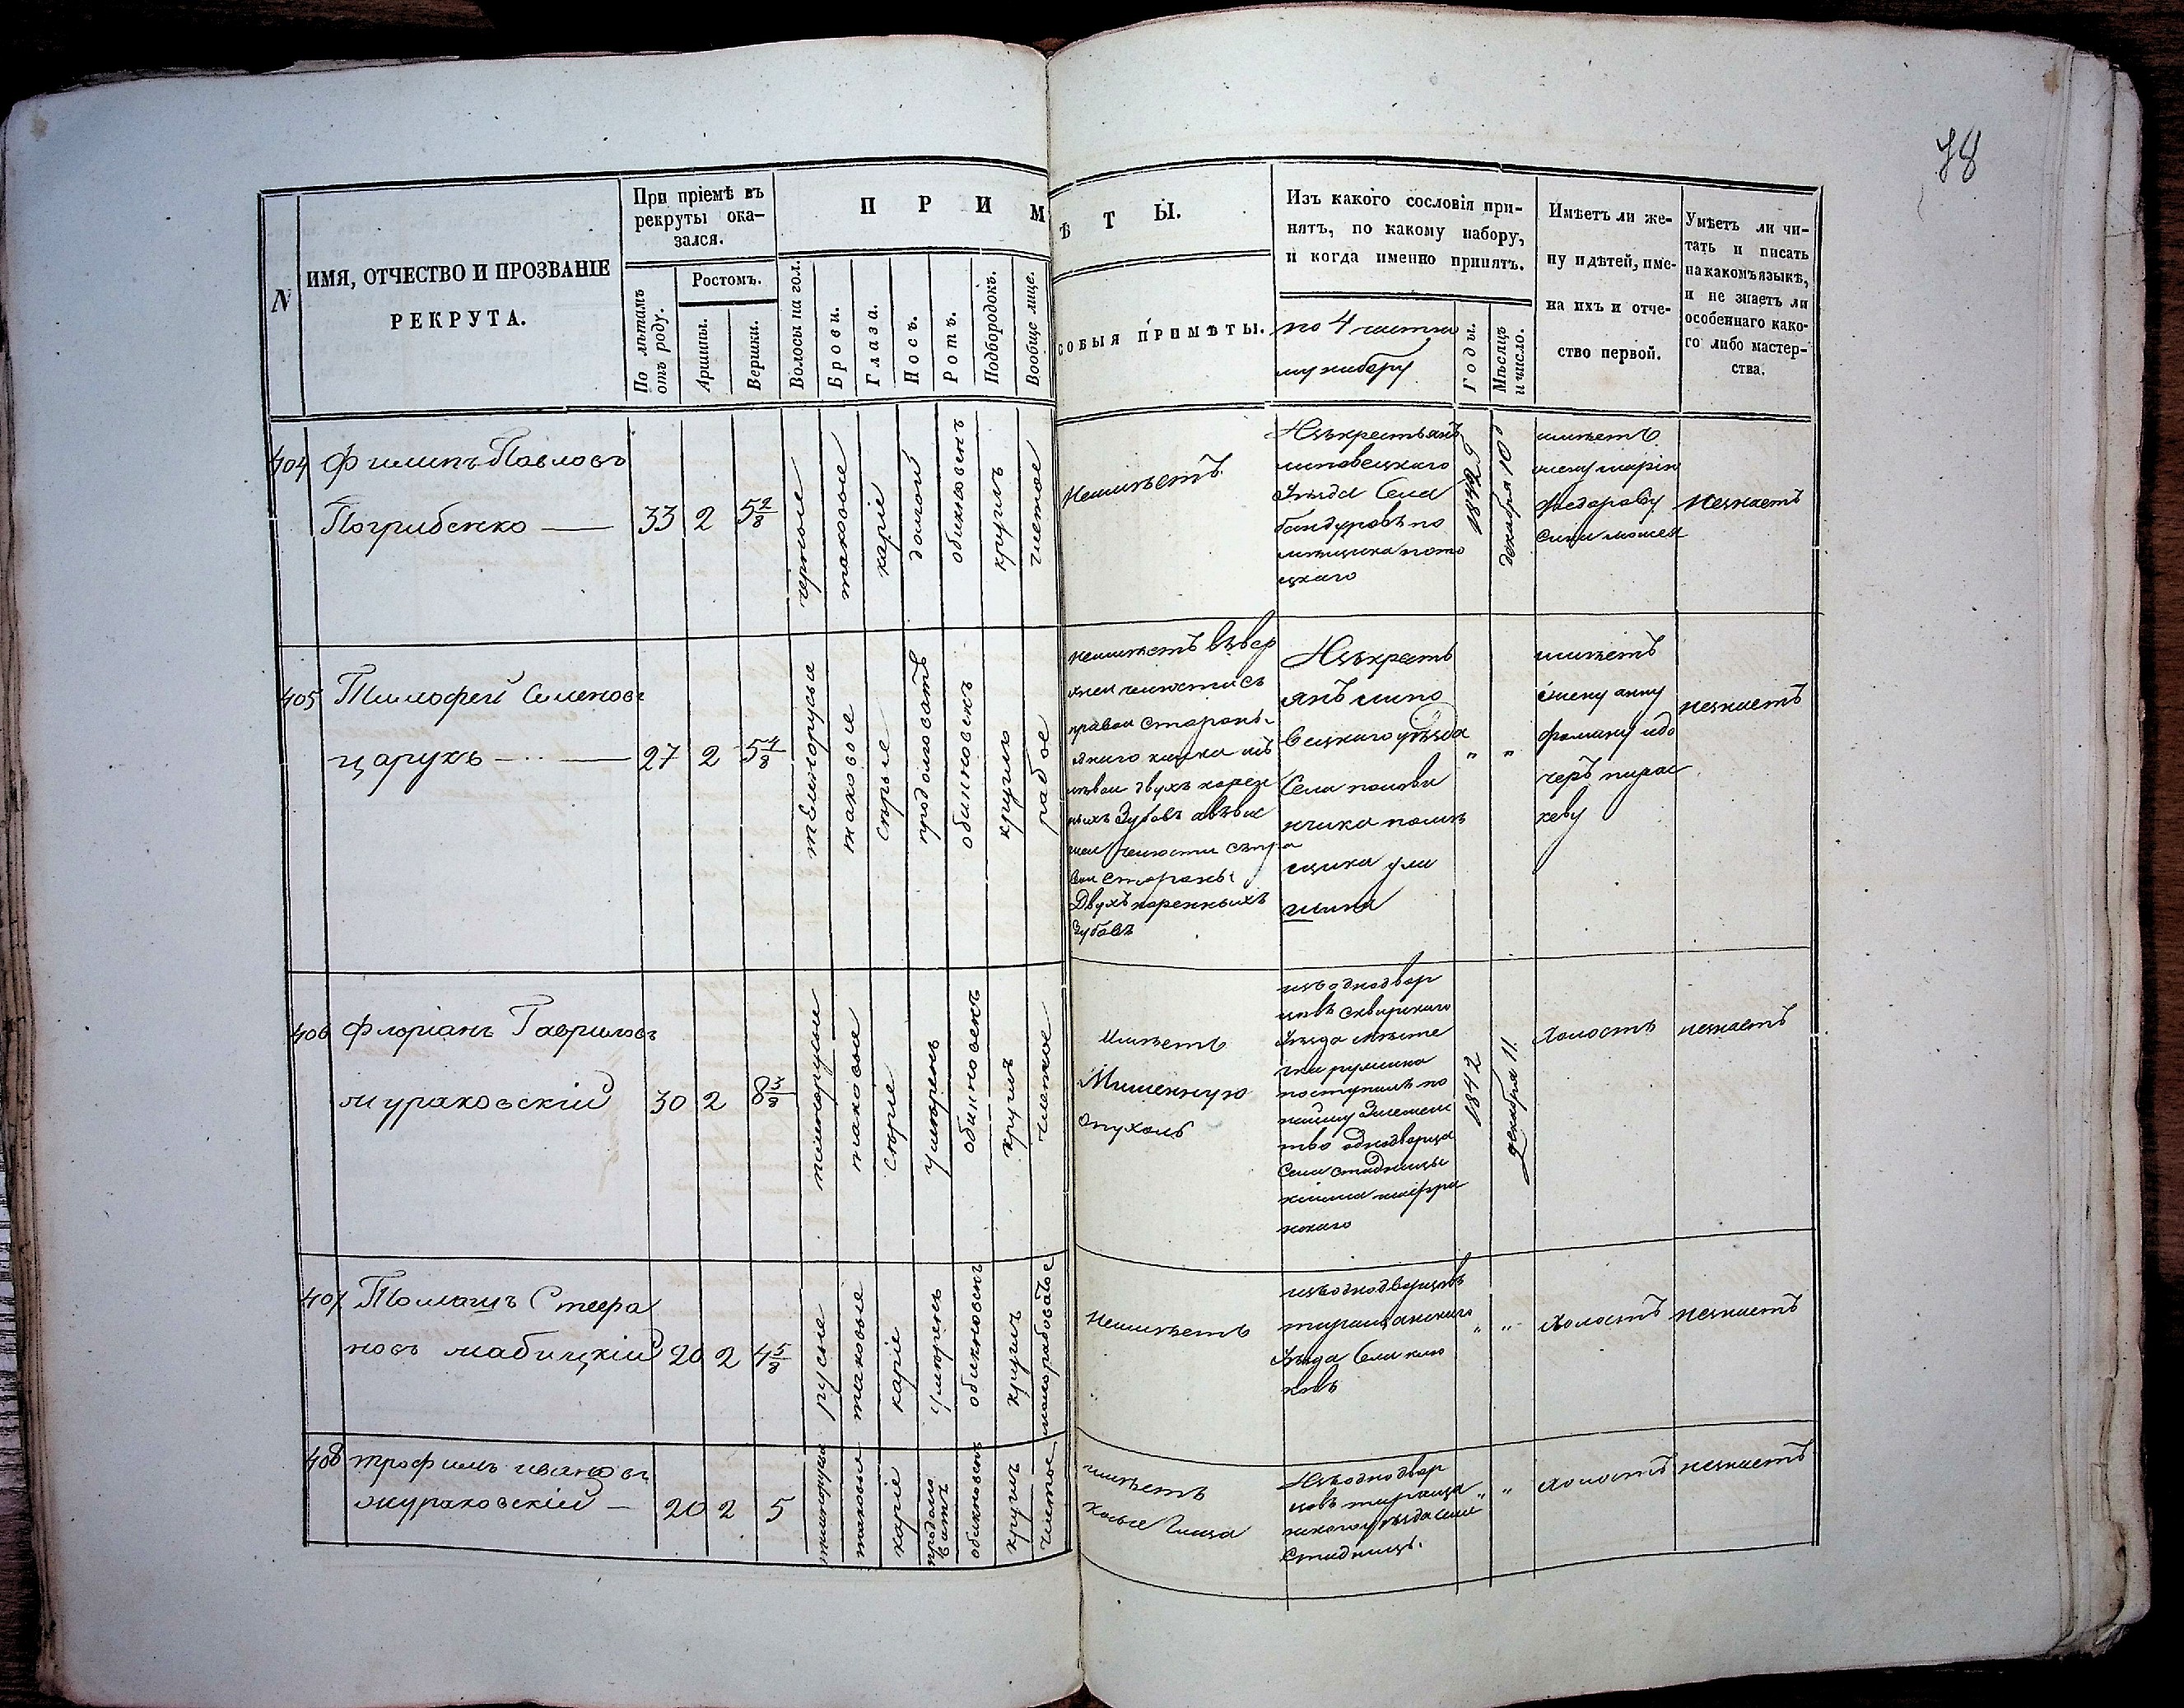 78
N
ИМЯ, ОТЧЕСТВО И ПРОЗВАНІЕ
РЕКРУТА.
При пріемѣ въ
рекруты ока-
зался.
По лѣтамъ
отъ роду.
Ростомъ.
Аршины.
Вершки.
П Р И М
Ѣ Т Ы.
Волосы на гол.
Брови.
Глаза.
Носъ.
Ротъ.
Подбородокъ.
Вообще лице.
СОБЫЯ ПРИМѢТЫ.
Изъ какого сословія при-
нятъ, по какому набору,
и когда именно принятъ.
по 4 частно
му набору
Годы.
Мѣсяцъ
и число.
Имѣетъ ли же-
ну и дѣтей, име-
на ихъ и отче-
ство первой.
Умѣетъ ли чи-
тать и писать
на какомъ языкѣ,
и не знаетъ ли
особеннаго како-
го либо мастер-
ства.
404
Филипъ Павловъ
Погрибенко
33
2
5 2/8
черные
таковые
каріе
долгой
обикновенъ
круглъ
чистое
неимѣетъ
Изъкрестьянъ
липовецкаго
Уѣзда Села
бандуровъ по
мѣщика пото
цкаго
1842
декабря 10
имѣетъ
жену марію
Федорову
незнаетъ
405
Тимофей Семеновъ
царукъ
27
2
5 4/8
темнорусые
таковые
сѣрые
продолговатъ
обикновенъ
круглъ
рабое
неимѣетъ въвер
хней челюсти съ
правой стороны
двухъ корен
ныхъ Зубовъ
челюсти
стороны
Двухъ коренныхъ
зубовъ
Изъкресть
янъ липо
вецкаго уѣзда
Села
помѣ
щика
"
"
имѣетъ
жену анну
фомину идо
черъ парас
кеву
незнаетъ
406
Флоріанъ Гавриловъ
мураховскій
30
2
8 3/8
темнорусые
таковые
сѣріе
умѣренъ
обикновенъ
круглъ
чистое
Имѣетъ
Мишечную
Опухоль
изъ однодвор
цовъ сквирскаго
Уѣзда мѣсте
чка ружина
поступилъ по
найму
однодворца
Села стадницы
1842
Декабря 11
Холостъ
незнаетъ
407
Томашъ Стефа
новъ
20
2
4 5/8
русые
таковые
каріе
умѣренъ
обикновенъ
круглъ
малорабоватое
Неимѣетъ
изъоднодворцовъ
таращанскаго
Уѣзда Села
"
"
Холостъ
незнаетъ
408
трофимъ ивановъ
жураковскій
20
2
5
темнорусые
таковые
каріе
продолго
ватъ
обикновенъ
круглъ
чистое
имѣетъ
Косые Глаза
Изъоднодвор
цовъ тараща
нскаго уѣзда Села
Стадницъ.
"
"
холостъ
незнаетъ